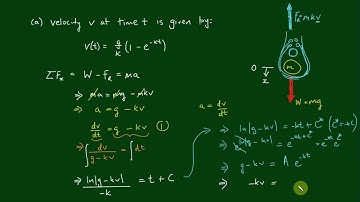 (a) Velocity v at time t is given by:
v(t) = g/k (1 - e^-kt)
ΣFx = W - fR = ma
⇒ ma = mg - mkv
⇒ a = g - kv
dv/dt = g - kv ①
⇒ ∫ dv/(g-kv) = ∫dt
⇒ ln|g-kv|/-k = t + C
a = dv/dt
⇒ ln|g-kv| = -kt + C* (C* = -kc)
⇒ g-kv = A e^-kt
⇒ -kv =
fR = mkv
0
x
m
W = mg